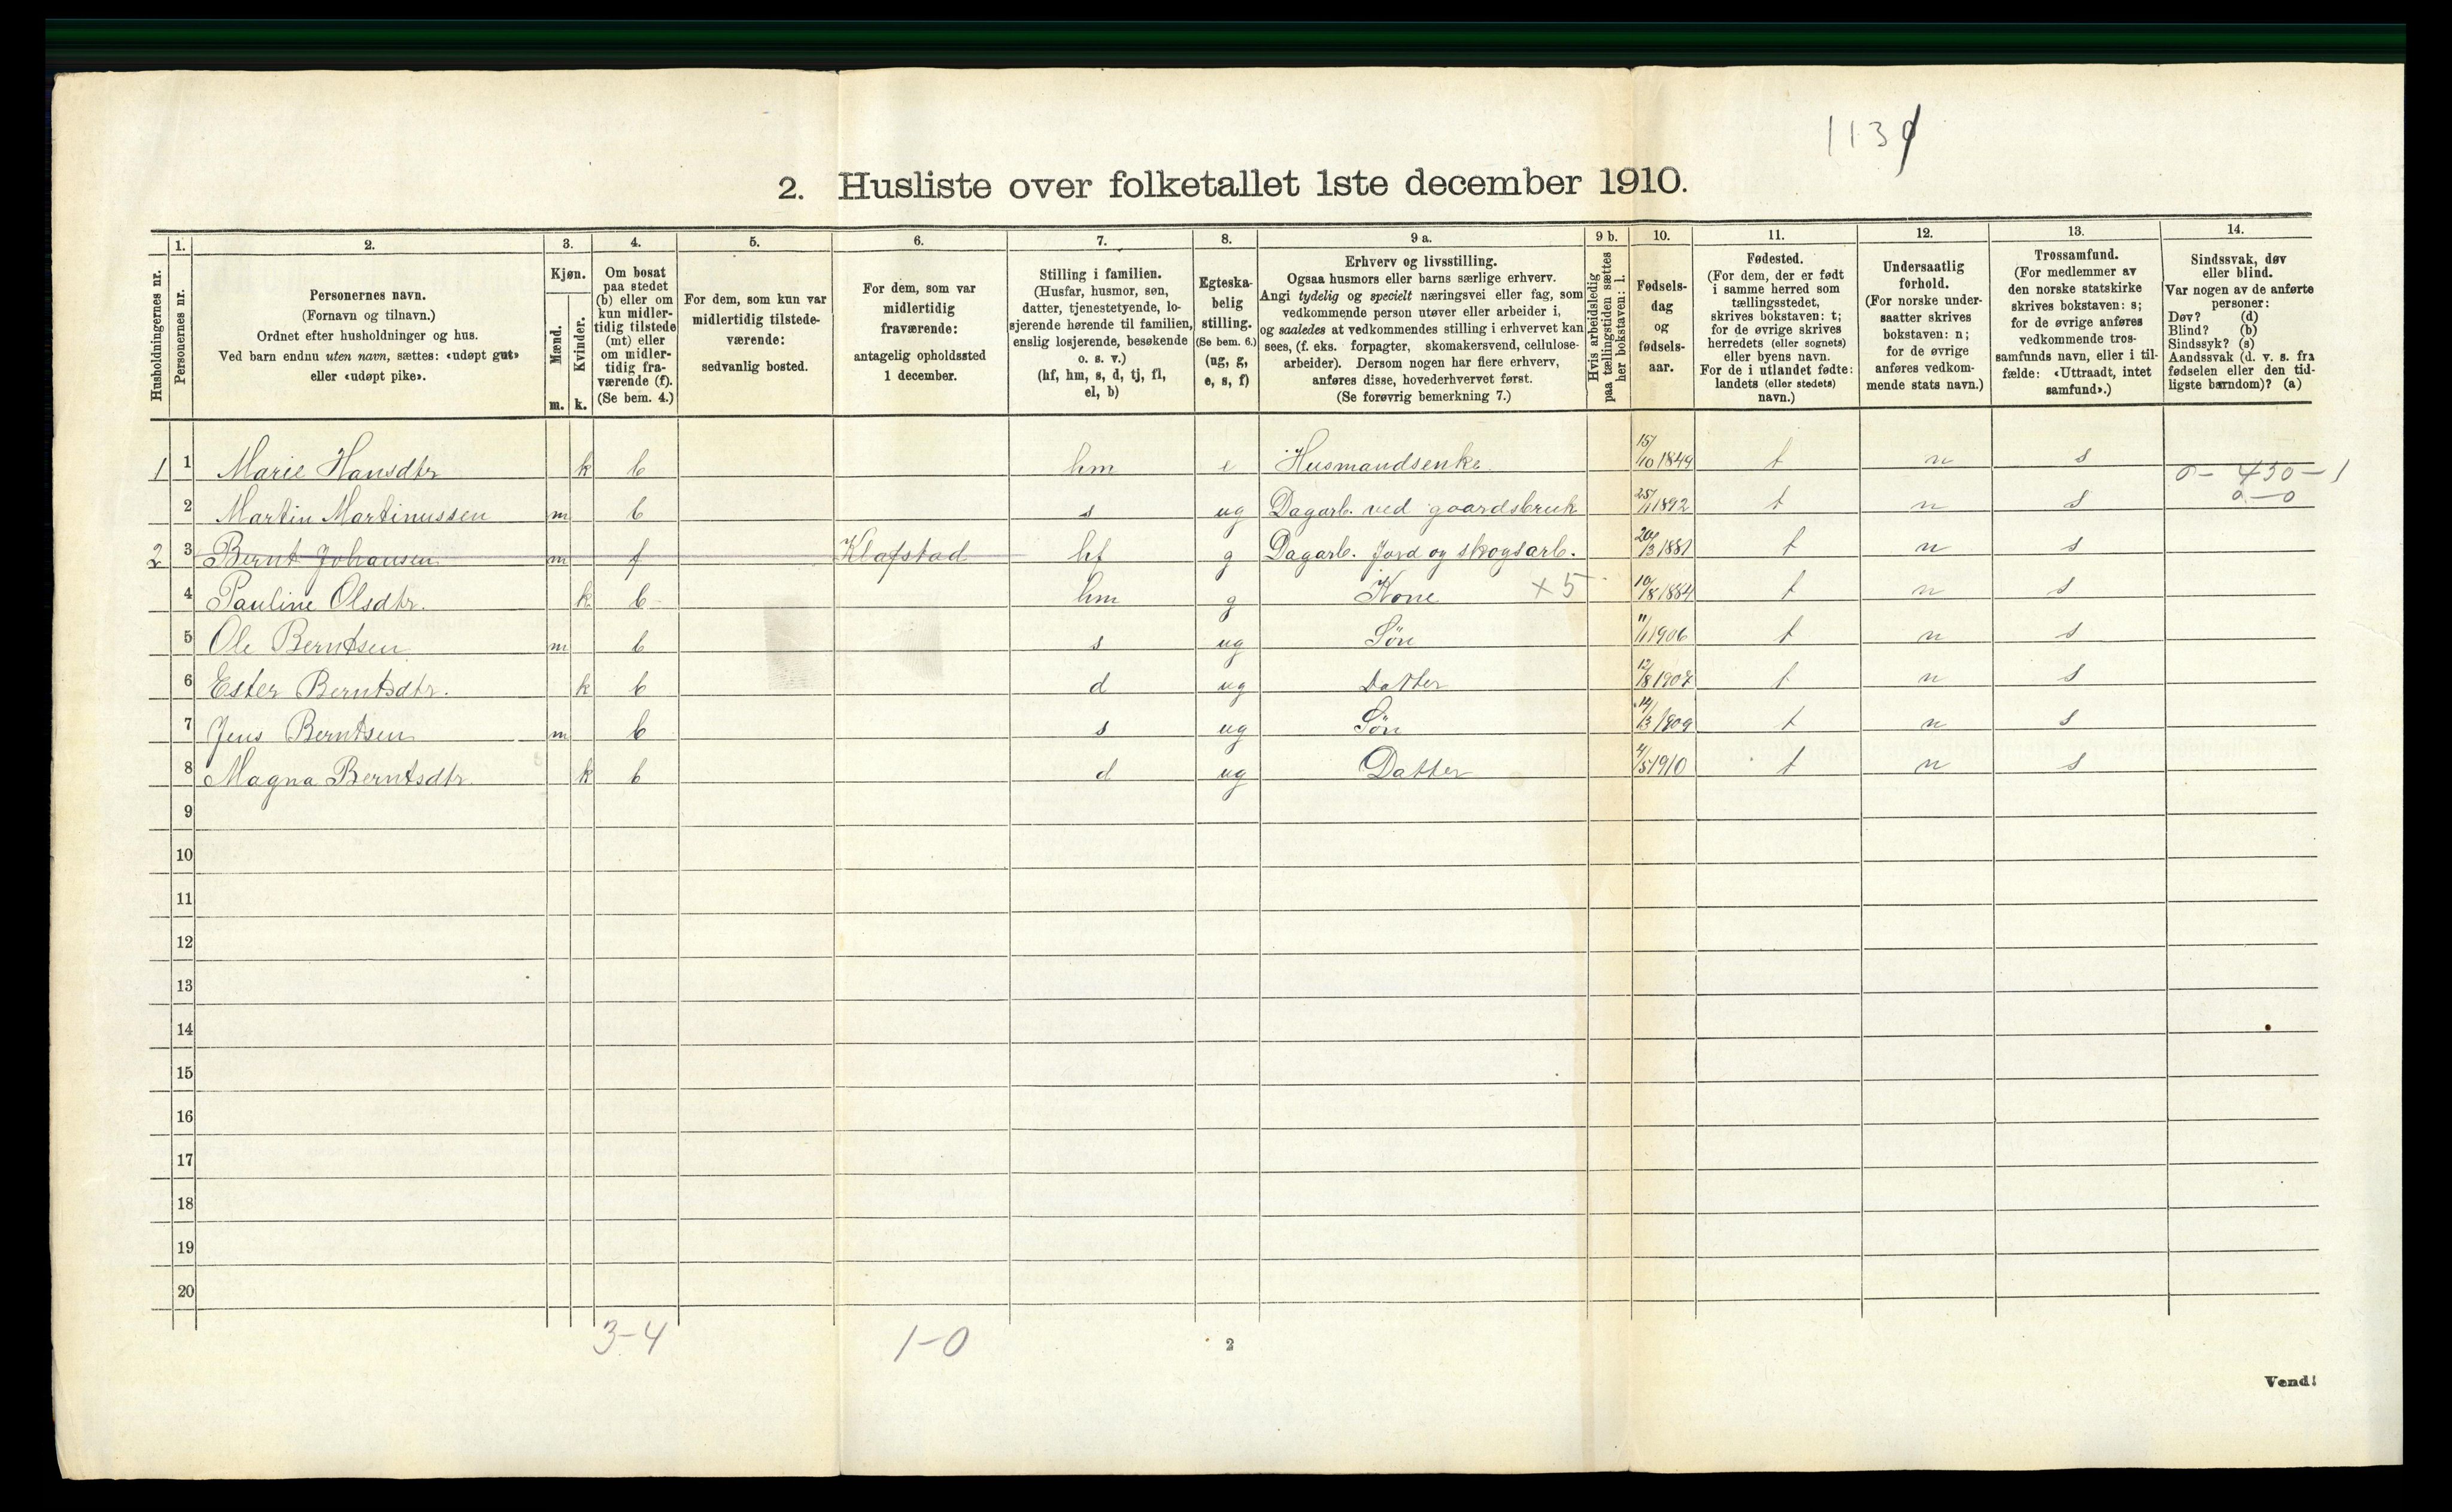 1139
2. Husliste over folketallet 1ste december 1910.
Husholdningernes nr.
1.
Personernes nr.
2.
Personernes navn.
(Fornavn og tilnavn.)
Ordnet efter husholdninger og hus.
Ved barn endnu uten navn, sættes: «udøpt gut»
eller «udøpt pike».
3.
Kjøn.
Mænd.
m.
Kvinder.
k.
4.
Om bosat
paa stedet
(b) eller om
kun midler-
tidig tilstede
(mt) eller
om midler-
tidig fra-
værende (f).
(Se bem. 4.)
5.
For dem, som kun var
midlertidig tilstede-
værende:
sedvanlig bosted.
6.
For dem, som var
midlertidig
fraværende:
antagelig opholdssted
1 december.
7.
Stilling i familien.
(Husfar, husmor, søn,
datter, tjenestetyende, lo-
sjerende hørende til familien,
enslig losjerende, besøkende
o. s. v.)
(hf, hm, s, d, tj, fl,
el, b)
8.
Egteska-
belig
stilling.
(Se bem. 6.)
(ug, g,
e, s, f)
9 a.
Erhverv og livsstilling.
Ogsaa husmors eller barns særlige erhverv.
Angi tydelig og specielt næringsvei eller fag, som
vedkommende person utøver eller arbeider i,
og saaledes at vedkommendes stilling i erhvervet kan
sees, (f. eks. forpagter, skomakersvend, cellulose-
arbeider). Dersom nogen har flere erhverv,
anføres disse, hovederhvervet først.
(Se forøvrig bemerkning 7.)
9 b.
Hvis arbeidsledig
paa tællingstiden sættes
her bokstaven: l.
10.
Fødsels-
dag
og
fødsels-
aar.
11.
Fødested.
(For dem, der er født
i samme herred som
tællingsstedet,
skrives bokstaven: t;
for de øvrige skrives
herredets (eller sognets)
eller byens navn.
For de i utlandet fødte:
landets (eller stedets)
navn.)
12.
Undersaatlig
forhold.
(For norske under-
saatter skrives
bokstaven: n;
for de øvrige
anføres vedkom-
mende stats navn.)
13.
Trossamfund.
(For medlemmer av
den norske statskirke
skrives bokstaven: s;
for de øvrige anføres
vedkommende tros-
samfunds navn, eller i til-
fælde: «Uttraadt, intet
samfund».)
14.
Sindssvak, døv
eller blind.
Var nogen av de anførte
personer:
Døv? (d)
Blind? (b)
Sindssyk? (s)
Aandssvak (d. v. s. fra
fødselen eller den tid-
ligste barndom)? (a)
1 1 Marie Hansdtr k b hm e Husmandsenke 15/10 1849 t n s 0 - 430 - 1
2 Martin Martinussen m b s ug Dagarb. ved gaardsbruk 25/11 1892 t n s 0 - 0
2 3 Bernt Johansen m f Klafstad hf g Dagarb. Jord og skogsarb. 20/3 1881 t n s
4 Pauline Olsdtr. k b hm g Kone x 5 10/8 1884 t n s
5 Ole Berntsen m b s ug Søn 11/1 1906 t n s
6 Ester Berntsdtr. k b d ug Datter 12/8 1907 t n s
7 Jens Berntsen m b s ug Søn 14/3 1909 t n s
8 Magna Berntsdtr. k b d ug Datter 4/5 1910 t n s
9
10
11
12
13
14
15
16
17
18
19
20
3-4 1-0
2
Vend!